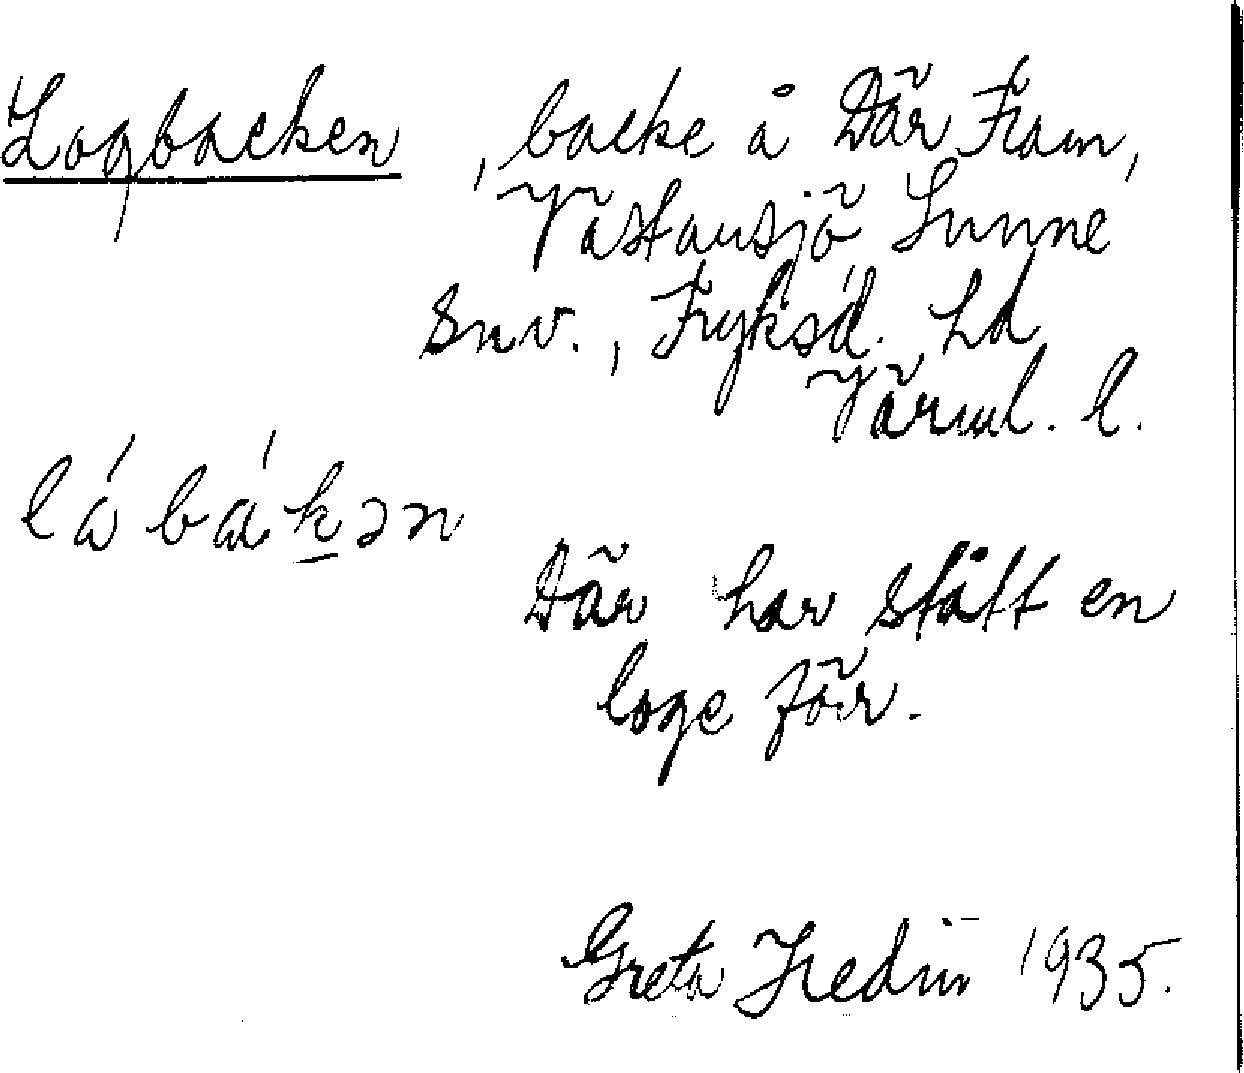 Logbacken, backe å Där Fram,
Västansjö Sunne
snv., Fryksd. hd
Värml. l.
lá bákən
Där har stått en
loge förr.
Greta Hedin 1935.